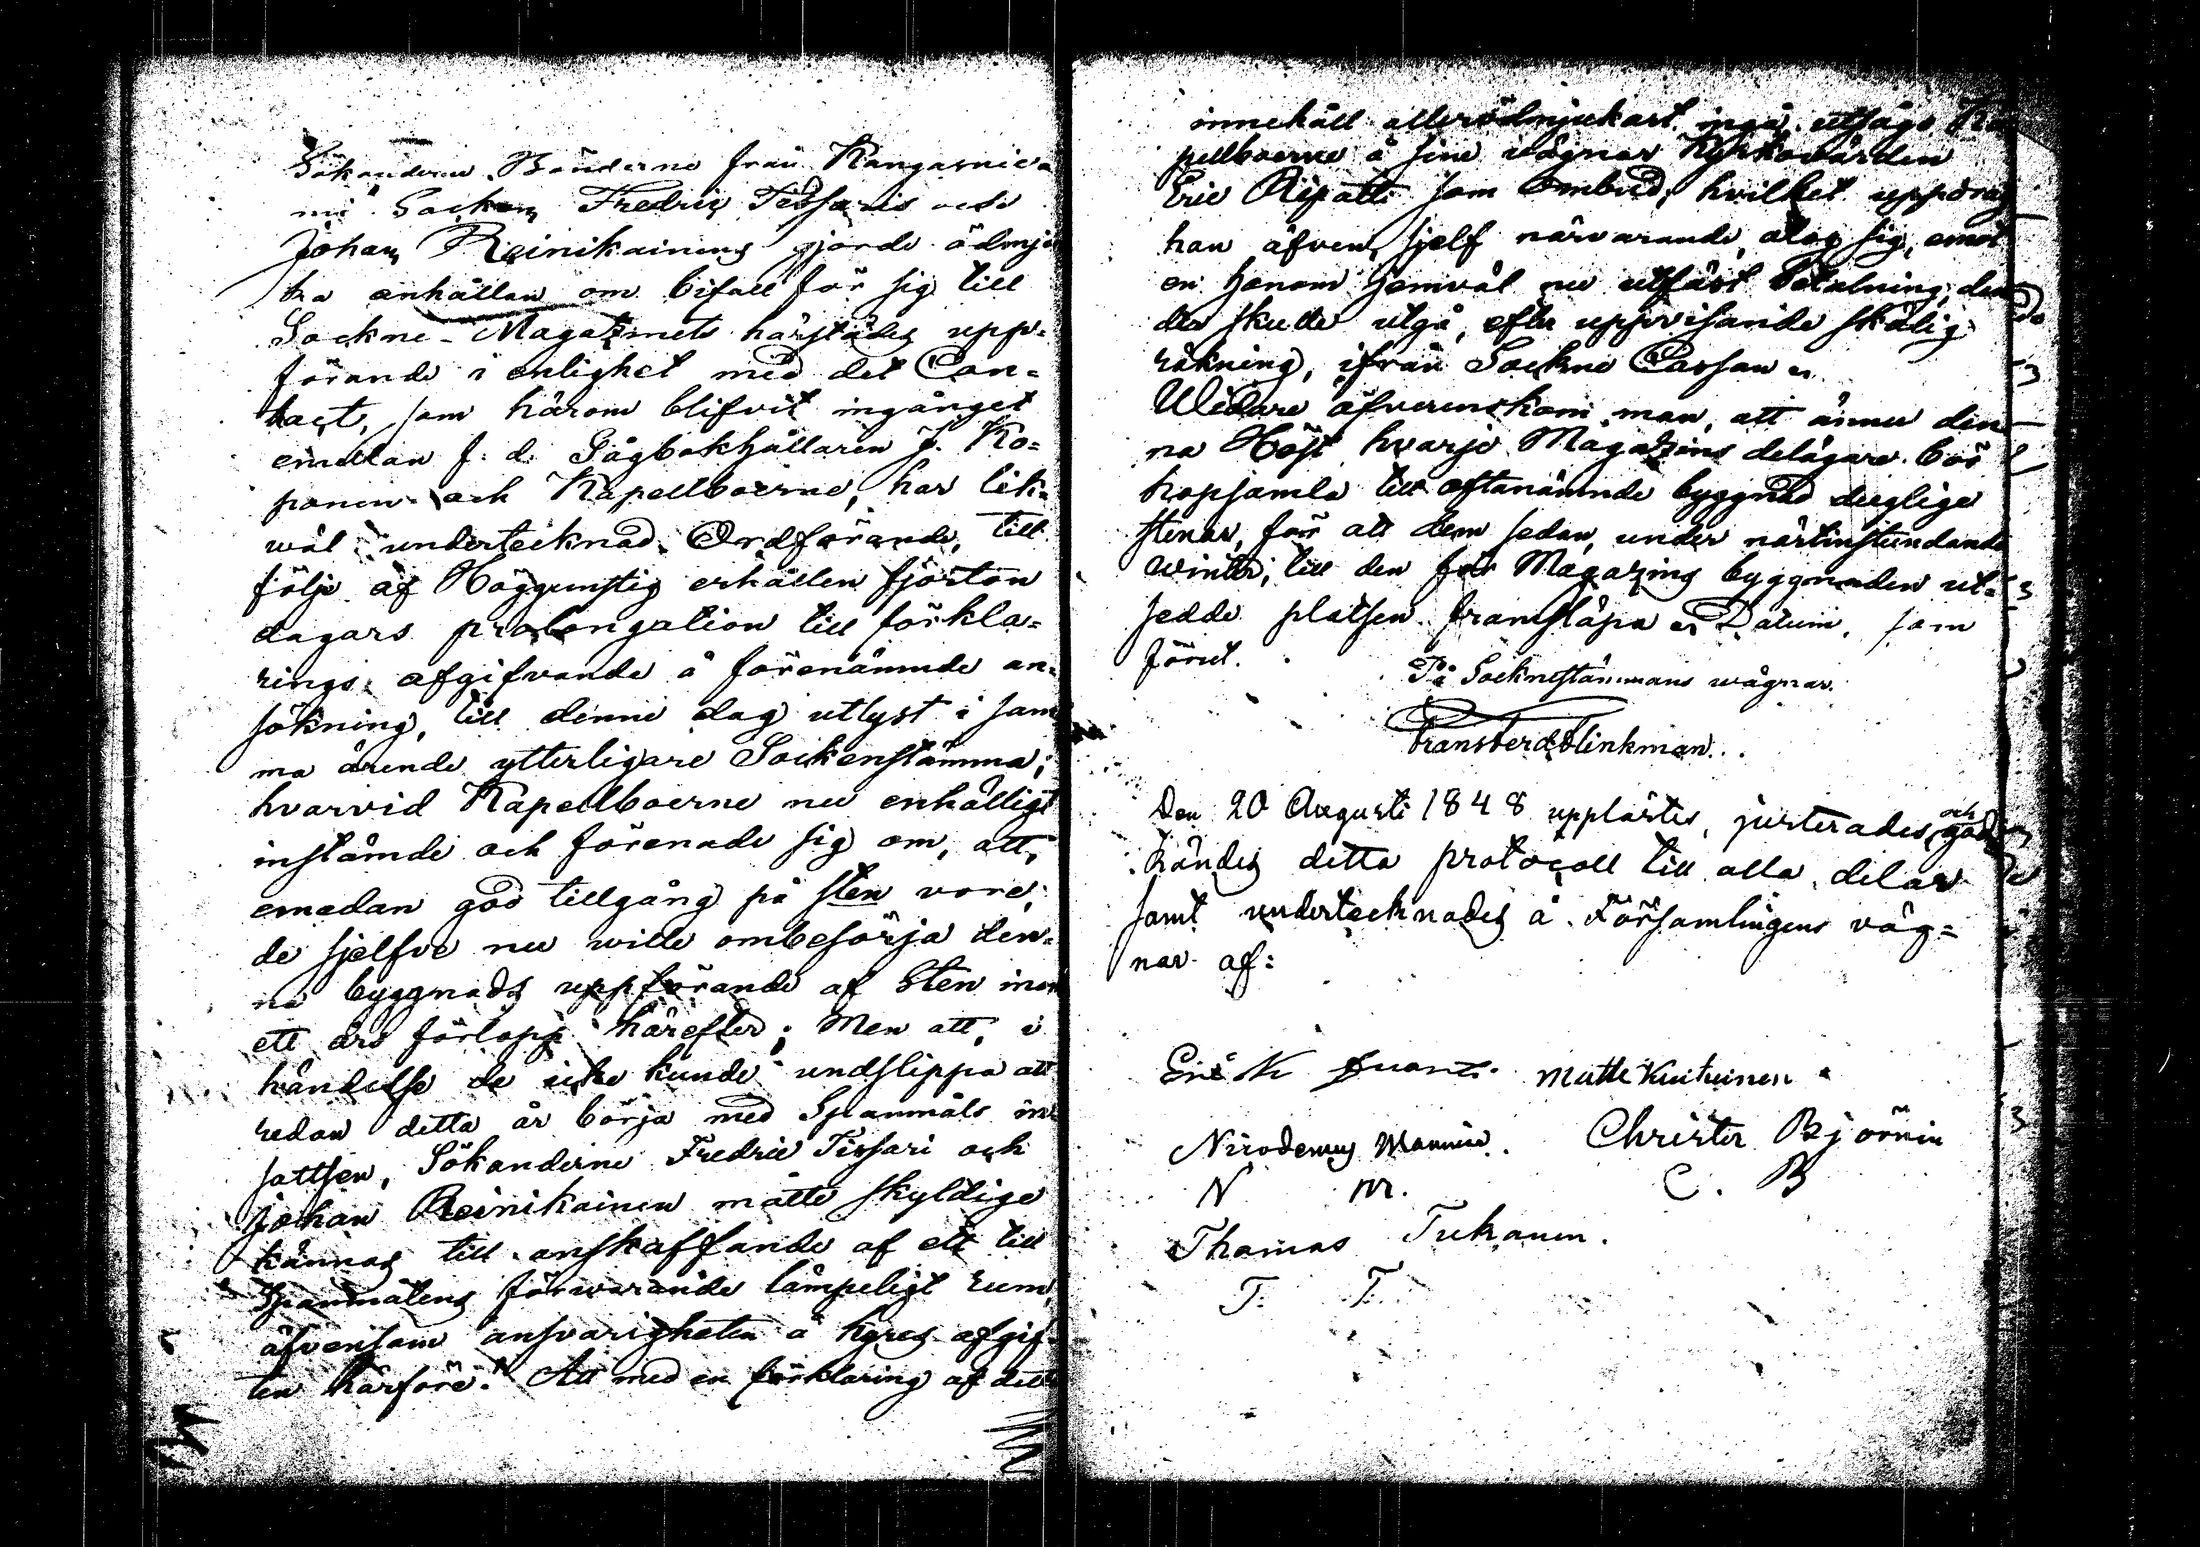 Sökanderne Bönderne från Kangasnie-
mi Socken Fredric Tissaris och
Johan Reinikainens gjorde ödmju
ka anhållan om bifall för sig till
Sockne-Magazinets härstädes upp-
förande i enlighet med det Con-
tract, som härom blifvit ingånget
emellan f: d: Sågbokhållaren J. Ko-
ponen och Kapellboerne, har lik-
wäl undertecknad Ordförande, till
följe af Höggunstig erhållen fjorton
dagars prolongation till förkla-
rings afgifvande å förenämnde an-
sökning, till denne dag utlyst i sam
ma ärende ytterligare Sockenstämma;
hvarvid Kapellboerne nu enhälligt
instämde och förenade sig om, att,
emedan god tillgång på sten vore,
de sjelfve nu wille ombesörja den-
na byggnads uppförande af Sten inom
ett års förlopp härefter; Men att, i
händelse de icke kunde undslippa att
redan detta år börja med Spanmåls in
sattsen, Sökanderne Fredric Tissari och
Johan Reinikainen måtte skyldige
kännas till anskaffande af ett till
Spanmålens förwarande lämpeligt rum,
äfvensom ansvarigheten å hyres afgif-
ten härföre." Att med en förklaring af dett
innehåll allerödmjukast ingå utsågo Ka
pellboerne å sine wägnar Kyrkovärden
Eric Ripatti som Ombud, hvilket uppdrag
han äfven, sjelf närvarande, åtog sig, emot
en honom jemväl nu utfäst betalning, den
der skulle utgå, efter uppvisande skälig
räkning, ifrån Sockne Cassan
Widare öfverenskom man, att ännu den-
na Höst hvarje Magazins delägare bör
hopsamla till oftanämnde byggnad duglige
stenar, för att dem sedan, under nästinstundande
winter, till den för Magazins byggnaden ut-
sedde platsen framsläpa Datum, som
förut.
På Socknestämmans wägnar.
Frans Ferd. Flinkman.
Den 20 Augusti 1848 upplästes, justerades och god
kändes detta protocoll till alla delar
samt undertecknades å Församlingens väg-
nar af:
Matts Kuitunen
Nicodemus Manni. Christer Björnin
N M. C. B
Thomas Tukanen.
T. T.